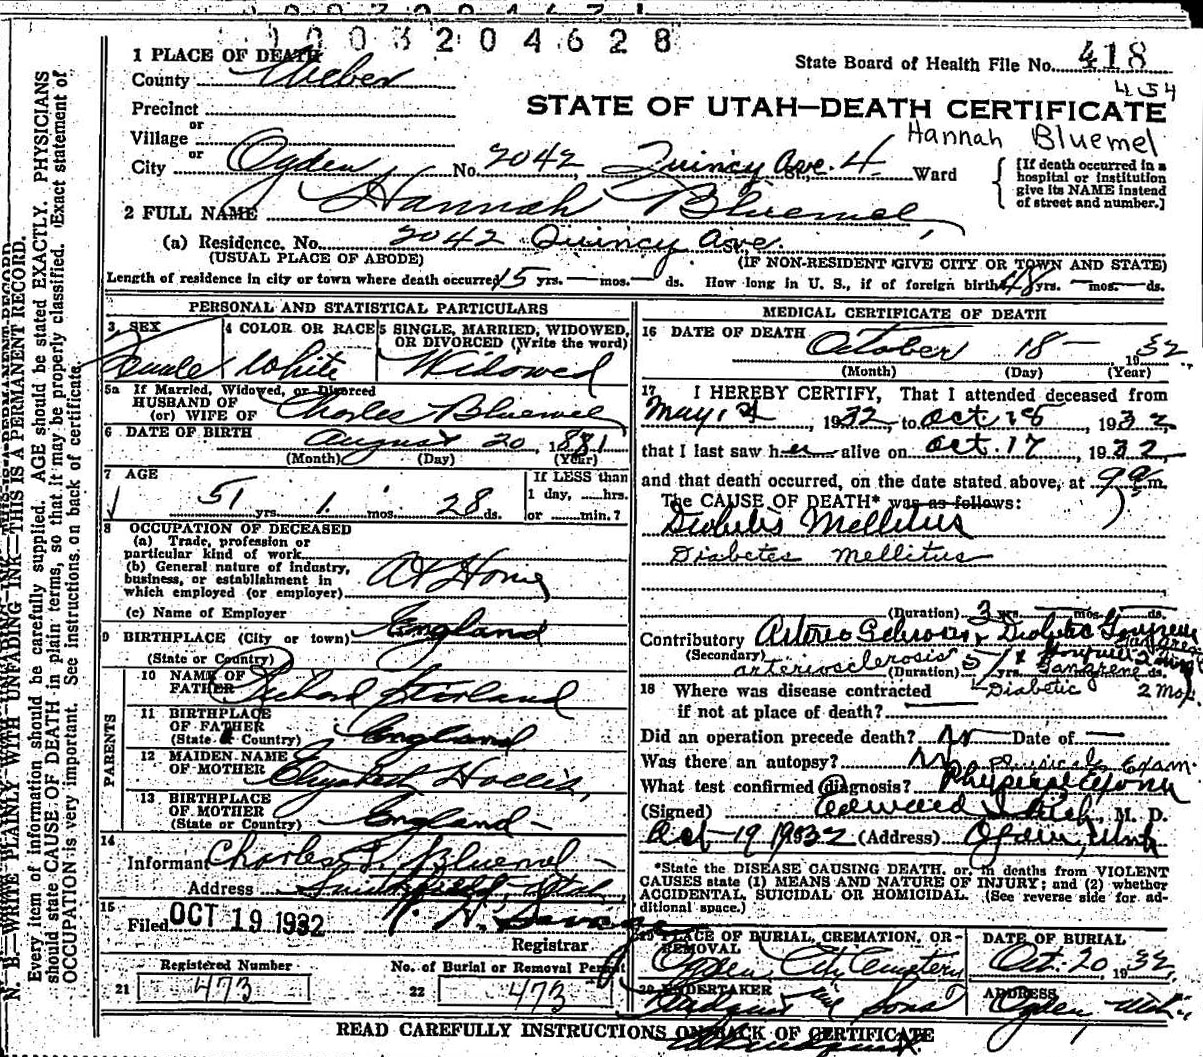 1003204628
1 PLACE OF DEATH
County Weber
State Board of Health File No. 418
434
Precinct
STATE OF UTAH—DEATH CERTIFICATE
or
Village
Hannah Bluemel
or
City Ogden No. 2042, Quincy Ave. 4 Ward
[If death occurred in a hospital or institution give its NAME instead of street and number.]
2 FULL NAME Hannah Bluemel,
(a) Residence. No. 2042 Quincy Ave.
(USUAL PLACE OF ABODE)
(IF NON-RESIDENT GIVE CITY OR TOWN AND STATE)
Length of residence in city or town where death occurred 15 yrs. — mos. — ds. How long in U. S., if of foreign birth 48 yrs. — mos. — ds.
PERSONAL AND STATISTICAL PARTICULARS
3 SEX
Female
4 COLOR OR RACE
White
5 SINGLE, MARRIED, WIDOWED, OR DIVORCED (Write the word)
Widowed
5a If Married, Widowed, or Divorced
HUSBAND OF
(or) WIFE OF Charles Bluemel
6 DATE OF BIRTH August 20, 1881
(Month) (Day) (Year)
7 AGE
51 yrs. 1 mos. 28 ds.
If LESS than
1 day, ......hrs.
or ......min.?
8 OCCUPATION OF DECEASED
(a) Trade, profession or
particular kind of work
(b) General nature of industry,
business, or establishment in
which employed (or employer)
At Home
(c) Name of Employer
9 BIRTHPLACE (City or town) England
(State or Country)
PARENTS
10 NAME OF
FATHER Richard
11 BIRTHPLACE
OF FATHER
(State & Country) England
12 MAIDEN NAME
OF MOTHER Elizabeth Hollis,
13 BIRTHPLACE
OF MOTHER
(State or Country) England —
14
Informant Charles Bluemel —
Address Smithfield, Utah
15
Filed OCT 19 1932
Registrar
Registered Number
21 473
No. of Burial or Removal Permit
22 473
MEDICAL CERTIFICATE OF DEATH
16 DATE OF DEATH
October 18 — 1932
(Month) (Day) (Year)
17 I HEREBY CERTIFY, That I attended deceased from
May 1st, 1932, to Oct. 18, 1932,
that I last saw her alive on Oct. 17, 1932,
and that death occurred, on the date stated above, at 9 a m.
The CAUSE OF DEATH* was as follows:
Diabetis Mellitus
Diabetes mellitus
(Duration) 3 yrs. — mos. — ds.
Contributory Arterio Sclerosis & Diabetic Gangrene
(Secondary) arteriosclerosis
(Duration) 5 yrs. mos. ds.
Gangrene
Diabetic 2 Mos.
18 Where was disease contracted
if not at place of death?
Did an operation precede death? No Date of —
Was there an autopsy? No Physical Exam.
What test confirmed diagnosis? Physical Exam
(Signed) Edward I. Rich, M. D.
Oct 19 1932 (Address) Ogden, Utah
*State the DISEASE CAUSING DEATH, or, in deaths from VIOLENT
CAUSES state (1) MEANS AND NATURE OF INJURY; and (2) whether
ACCIDENTAL, SUICIDAL OR HOMICIDAL. (See reverse side for additional space.)
19 PLACE OF BURIAL, CREMATION, OR REMOVAL
Ogden City Cemetery
DATE OF BURIAL
Oct. 20, 1932
20 UNDERTAKER
Sons
ADDRESS
Ogden, Utah
READ CAREFULLY INSTRUCTIONS ON BACK OF CERTIFICATE
N. B.—WRITE PLAINLY WITH UNFADING INK—THIS IS A PERMANENT RECORD.
Every item of information should be carefully supplied. AGE should be stated EXACTLY. PHYSICIANS
should state CAUSE OF DEATH in plain terms, so that it may be properly classified. Exact statement of
OCCUPATION is very important. See instructions on back of certificate.